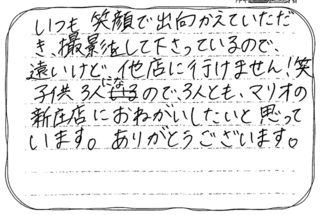 いつも笑顔で出向かえていただ
き、撮影をして下さっているので、
遠いけど、他店に行けません！笑
子供3人になるので、3人とも、マリオの
新庄店におねがいしたいと思って
います。ありがとうございます。